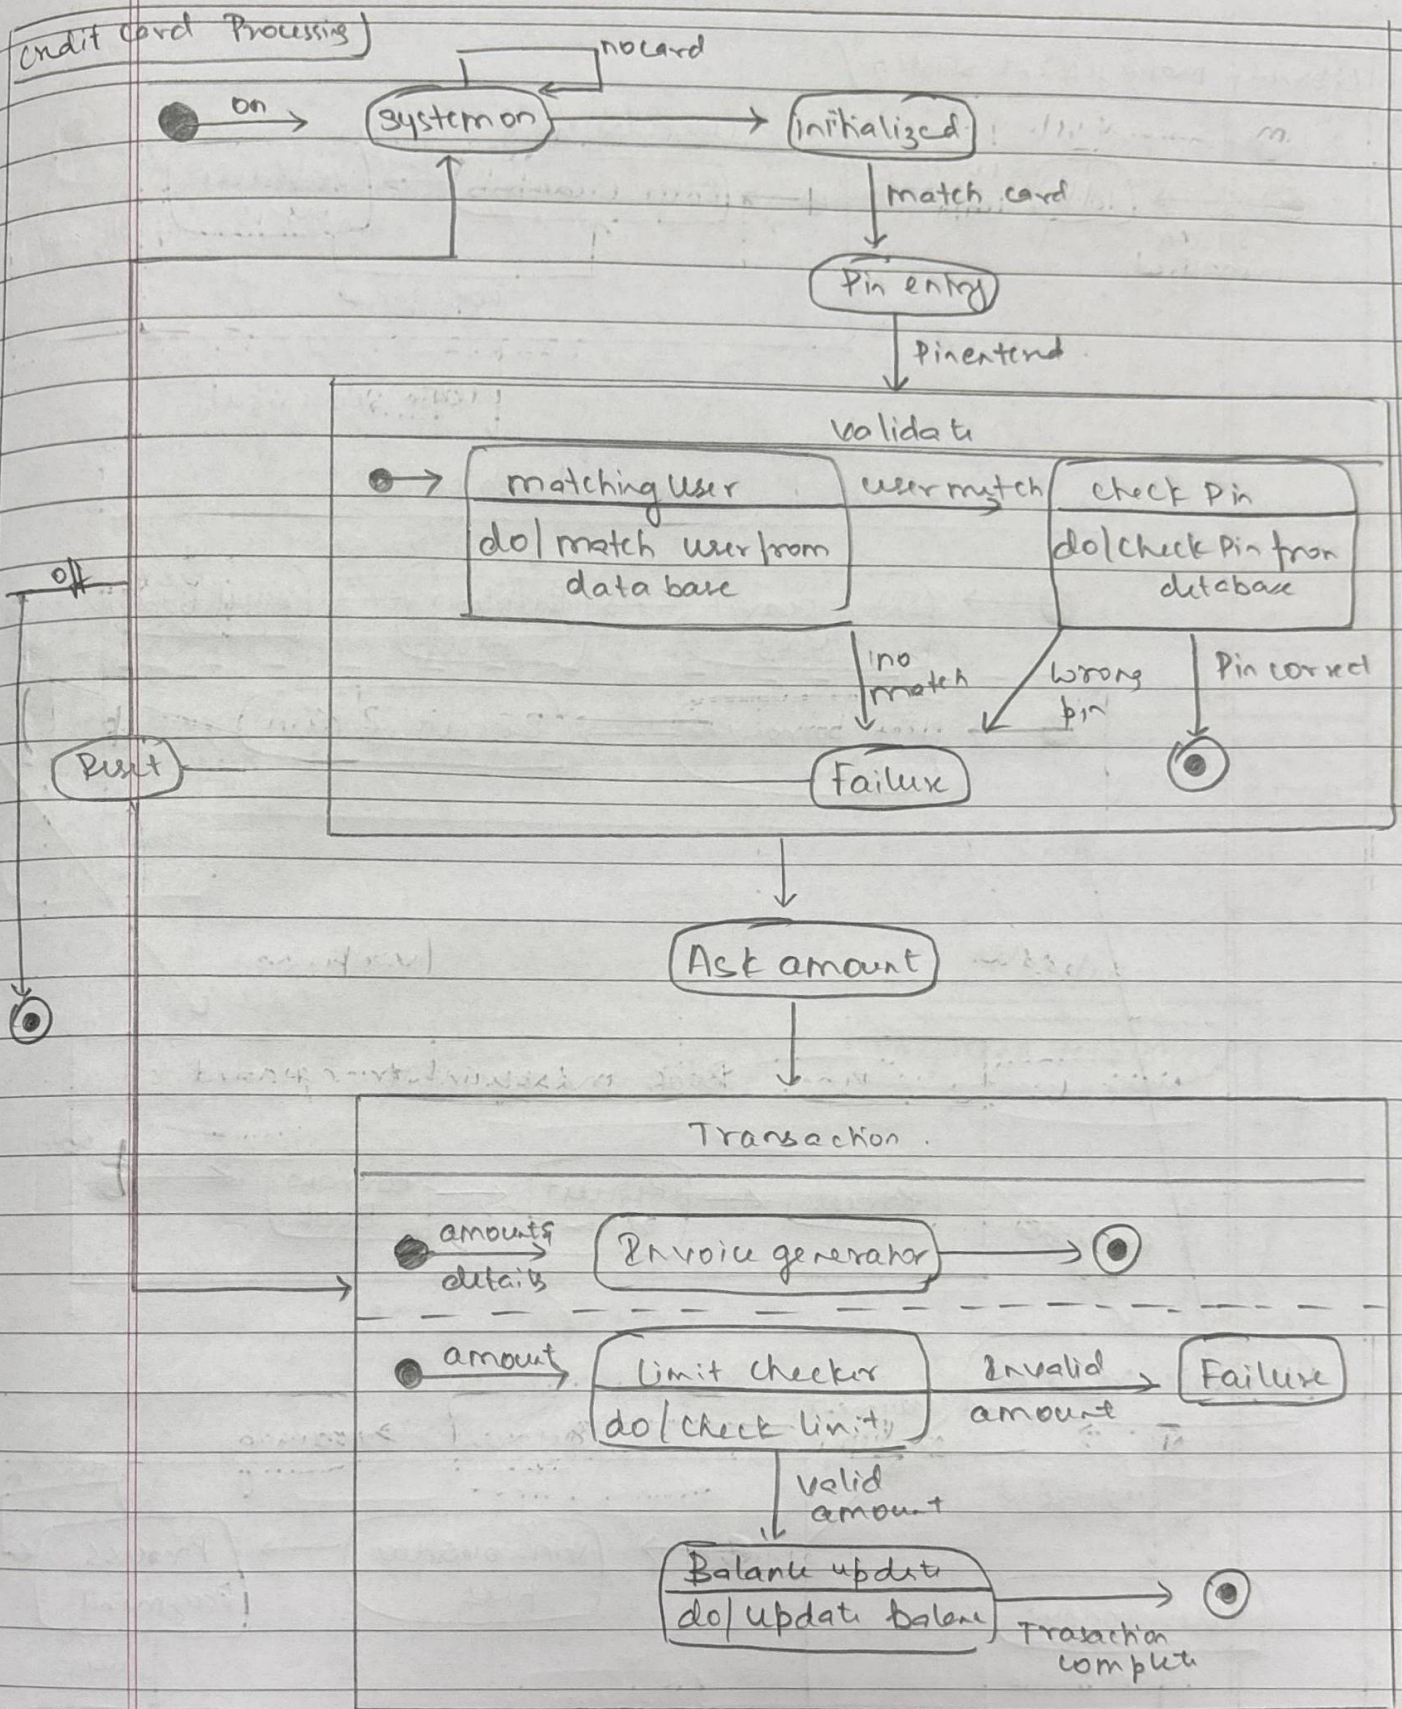 Credit Card Processing
no card
on
system on
initialized
match card
Pin entry
Pin entered
Validate
matching user
user match
check pin
do/ match user from
data base
do/check Pin from
database
off
no
match
wrong
pin
Pin correct
Reset
Failure
Ask amount
Transaction.
amounts
details
Invoice generator
amount
Limit checker
do/check limit
Invalid
amount
Failure
valid
amount
Balance update
do/ update balance
Trasaction
complete